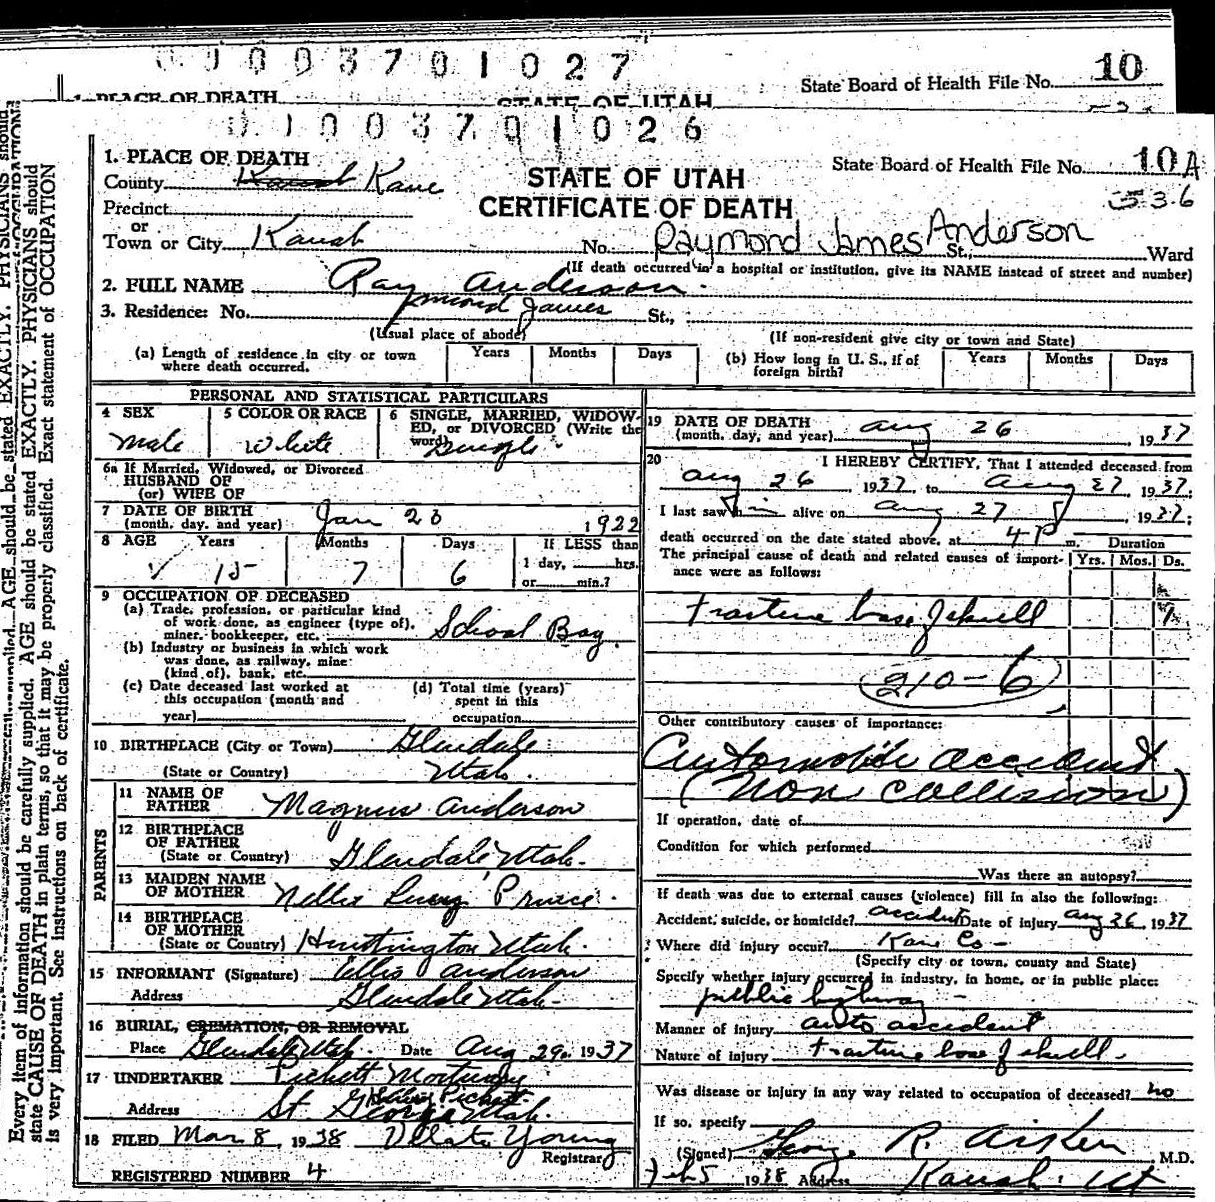 0003701027
State Board of Health File No. 10
1. PLACE OF DEATH
STATE OF UTAH
0003701026
1. PLACE OF DEATH
State Board of Health File No. 10A
County Kanab Kane
STATE OF UTAH
CERTIFICATE OF DEATH
536
Precinct
or
Town or City Kanab No. Raymond James Anderson St., Ward
(If death occurred in a hospital or institution, give its NAME instead of street and number)
2. FULL NAME Ray Anderson
ymond James
3. Residence: No. St.,
(Usual place of abode) (If non-resident give city or town and State)
(a) Length of residence in city or town where death occurred. Years Months Days
(b) How long in U. S., if of foreign birth? Years Months Days
PERSONAL AND STATISTICAL PARTICULARS
4 SEX Male
5 COLOR OR RACE White
6 SINGLE, MARRIED, WIDOWED, or DIVORCED (Write the word) Single
6a If Married, Widowed, or Divorced
HUSBAND OF
(or) WIFE OF
7 DATE OF BIRTH
(month, day, and year) Jan 20 1922
8 AGE Years Months Days If LESS than
15 7 6 1 day, hrs.
or min.?
9 OCCUPATION OF DECEASED
(a) Trade, profession, or particular kind
of work done, as engineer (type of),
miner, bookkeeper, etc. School Boy
(b) Industry or business in which work
was done, as railway, mine
(kind of), bank, etc.
(c) Date deceased last worked at
this occupation (month and
year)
(d) Total time (years)
spent in this
occupation
10 BIRTHPLACE (City or Town) Glendale
(State or Country) Utah.
PARENTS
11 NAME OF
FATHER Magnus Anderson
12 BIRTHPLACE
OF FATHER
(State or Country) Glendale Utah.
13 MAIDEN NAME
OF MOTHER Nellie
14 BIRTHPLACE
OF MOTHER
(State or Country) Huntington Utah.
15 INFORMANT (Signature) Ellis Anderson
Address Glendale Utah.
16 BURIAL, CREMATION, OR REMOVAL
Place Glendale Utah. Date Aug 29 1937
17 UNDERTAKER Pickett Mortuary
Pickett
Address St. George Utah.
18 FILED Mar 8, 1938 Young
Registrar
REGISTERED NUMBER 4
19 DATE OF DEATH
(month, day, and year) Aug 26, 1937
20 I HEREBY CERTIFY, That I attended deceased from
Aug 26 1937, to Aug 27, 1937;
I last saw him alive on Aug 27, 1937;
death occurred on the date stated above, at 4 P m. Duration
The principal cause of death and related causes of importance were as follows: Yrs. Mos. Ds.
Fracture base of skull
210-6
Other contributory causes of importance:
Automobile accident
(Non collision)
If operation, date of
Condition for which performed
Was there an autopsy?
If death was due to external causes (violence) fill in also the following:
Accident, suicide, or homicide? accident Date of injury Aug 26, 1937
Where did injury occur? Kane Co
(Specify city or town, county and State)
Specify whether injury occurred in industry, in home, or in public place:
public highway
Manner of injury auto accident
Nature of injury Fracture base of skull
Was disease or injury in any way related to occupation of deceased? no
If so, specify
(Signed) George R. Aiken M.D.
Feb 5 1938 Address Kanab Ut
Every item of information should be carefully supplied. AGE should be stated EXACTLY. PHYSICIANS should
state CAUSE OF DEATH in plain terms, so that it may be properly classified. Exact statement of OCCUPATION
is very important. See instructions on back of certificate.